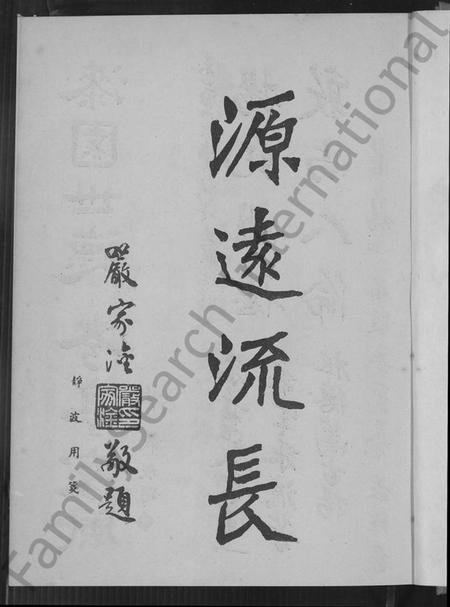 源遠流長
嚴家淦
嚴家淦印
敬題
靜波用箋
FamilySearch International